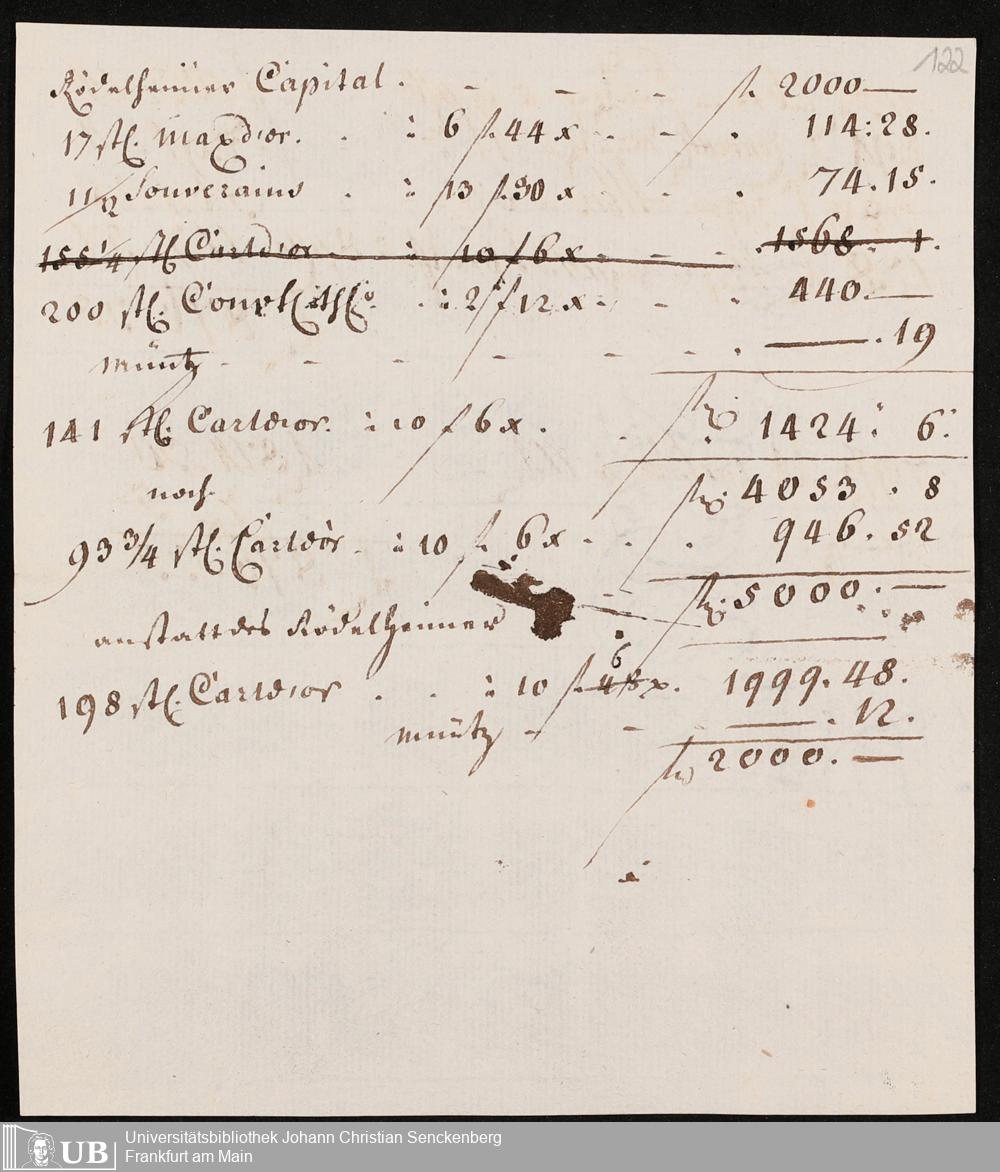 122
Rödelheimer Capital. - - - f. 2000 —
17 stl. Maxd'or. . à 6 f. 44 x - - . 114:28.
11/2 Souverains . à 13 f. 30 x . . . 74.15.
155 1/4 stl. Carld'or - à 10 f 6 x - - . 1568. 1.
200 stl. . à 2 f 12 x - - . 440. —
Müntz - - - - - - . — . 19
141 stl. Carld'or. à 10 f 6 x . . f 1424: 6.
noch f 4053 . 8
93 3/4 stl. Carld'or . à 10 f. 6 x . . . 946. 52
f 5000. —
anstatt des Rödelheimer
6
198 stl. Carld'or . . à 10 f. 48 x. 1999. 48.
Müntz - - — . 12.
f 2000. —
UB
Universitätsbibliothek Johann Christian Senckenberg
Frankfurt am Main